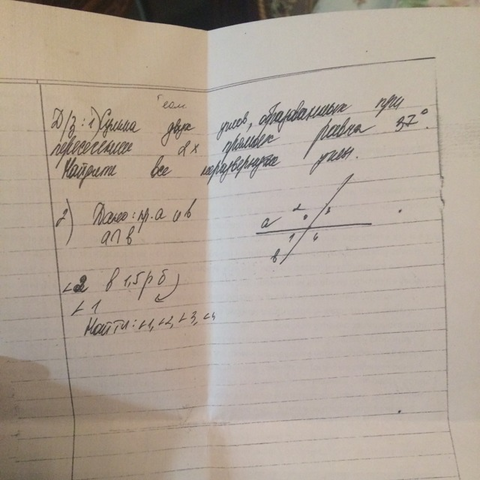 геом
Д/з: 1) Сумма двух углов, образованных при
пересечении 2х прямых равна 37°.
Найдите все неразвернутые углы.
2) Дано: пр. a и b
a∩b
∠2 в 1,5 р б
∠1
Найти: ∠1, ∠2, ∠3, ∠4
a 2 3
1 4
b